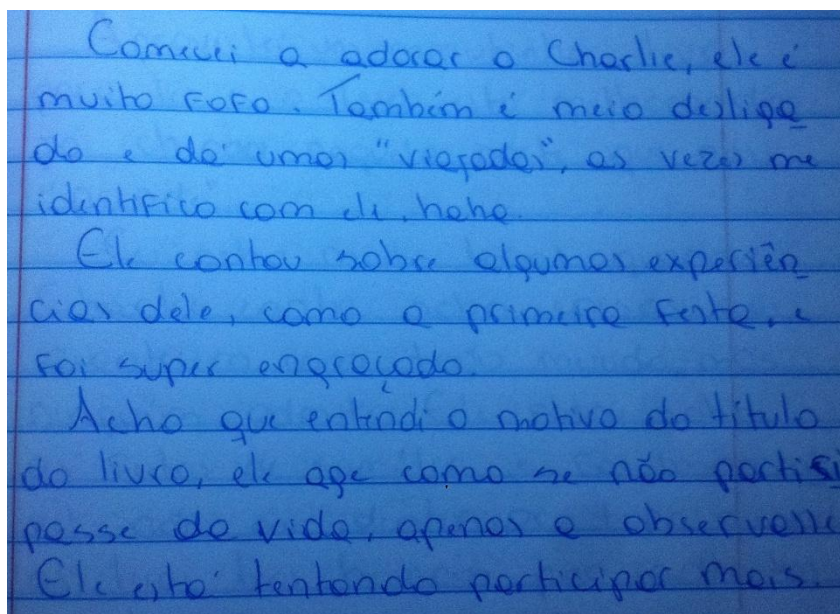 Comecei a adorar o Charlie, ele é
muito fofo. Também é meio desliga
do e dá umas "viajadas", as vezes me
identifico com ele, hehe.
Ele contou sobre algumas experiên
cias dele, como a primeira festa, e
foi super engraçado.
Acho que entendi o motivo do título
do livro, ele age como se não partis
passe da vida, apenas a observasse
Ele está tentando participar mais.